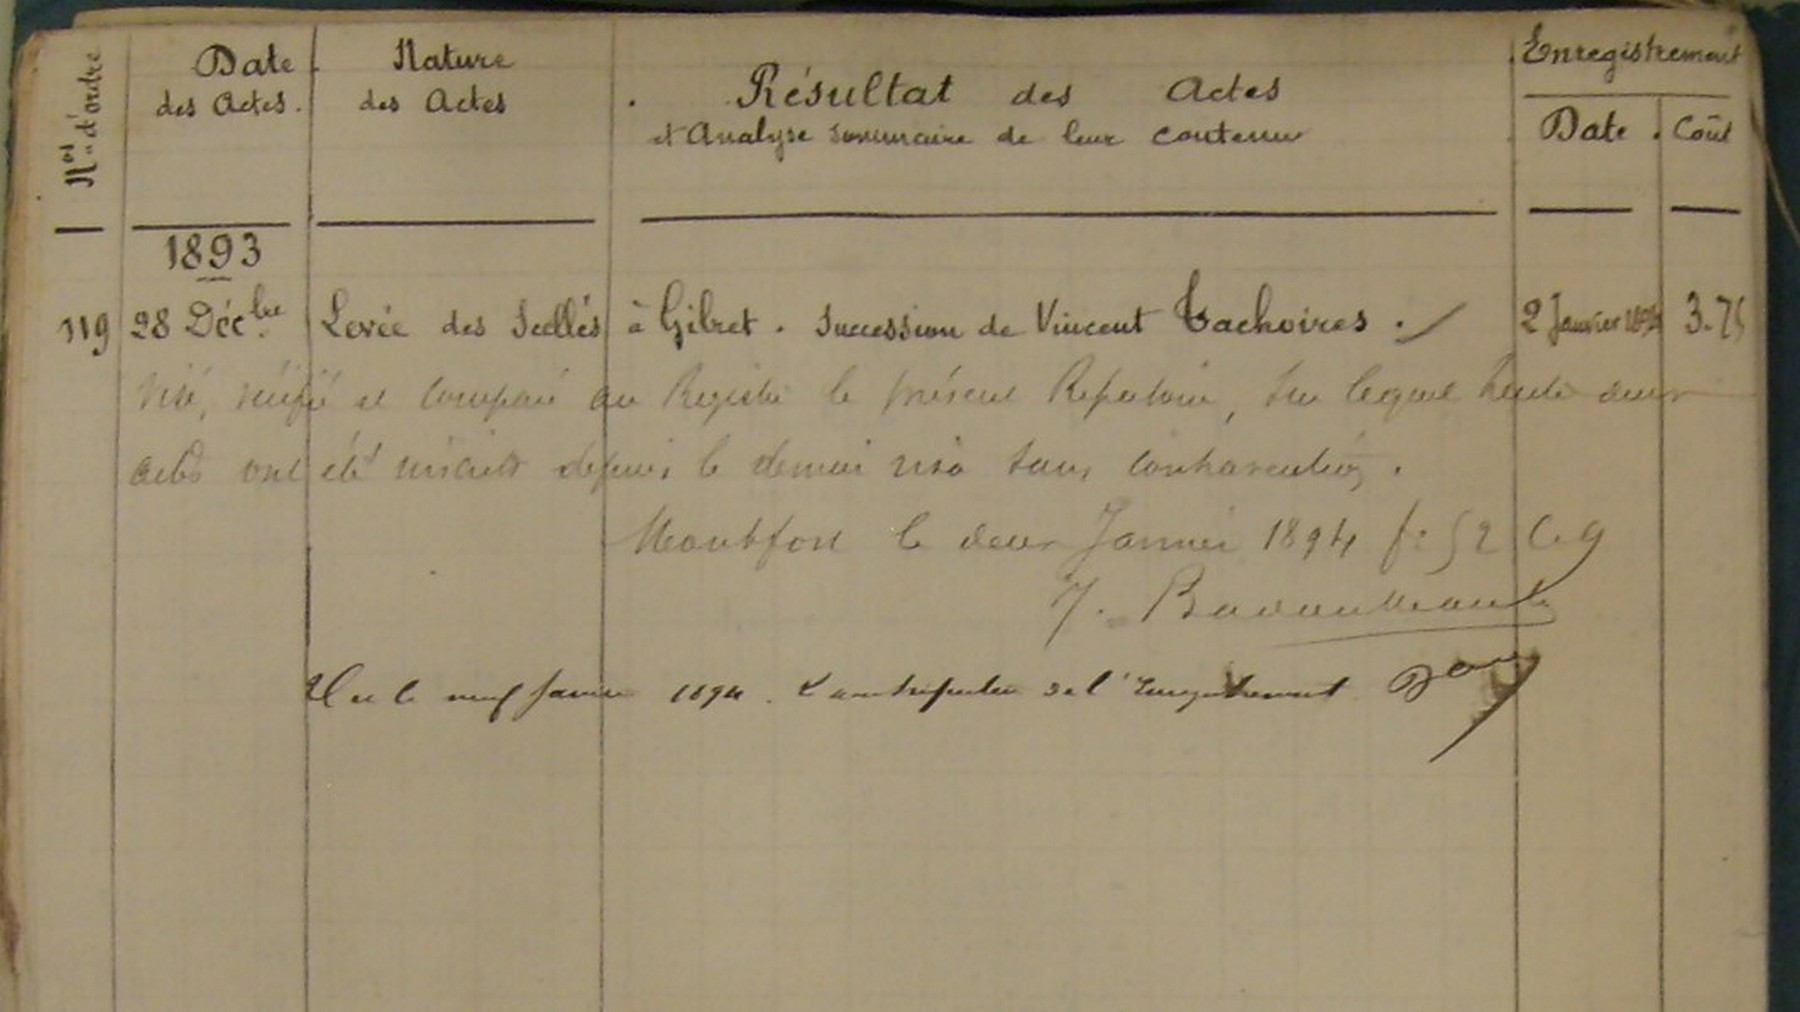 Nos d'ordre
Date des Actes.
Nature des Actes
Résultat des Actes
et Analyse sommaire de leur contenu
Enregistrement
Date
Coût
1893
119 28 Décbre Levée des Scellés à Gibret. Succession de Vincent Tachoires. 2 Janvier 1894 3.75
Visé, vérifié et comparé au Registre le présent Répertoire, sur lequel trente deux
actes ont été inscrits depuis le dernier visa sans contravention.
Montfort le deux Janvier 1894 f: 52 C. 9
Vu le neuf Janvier 1894. de l'Enregistrement